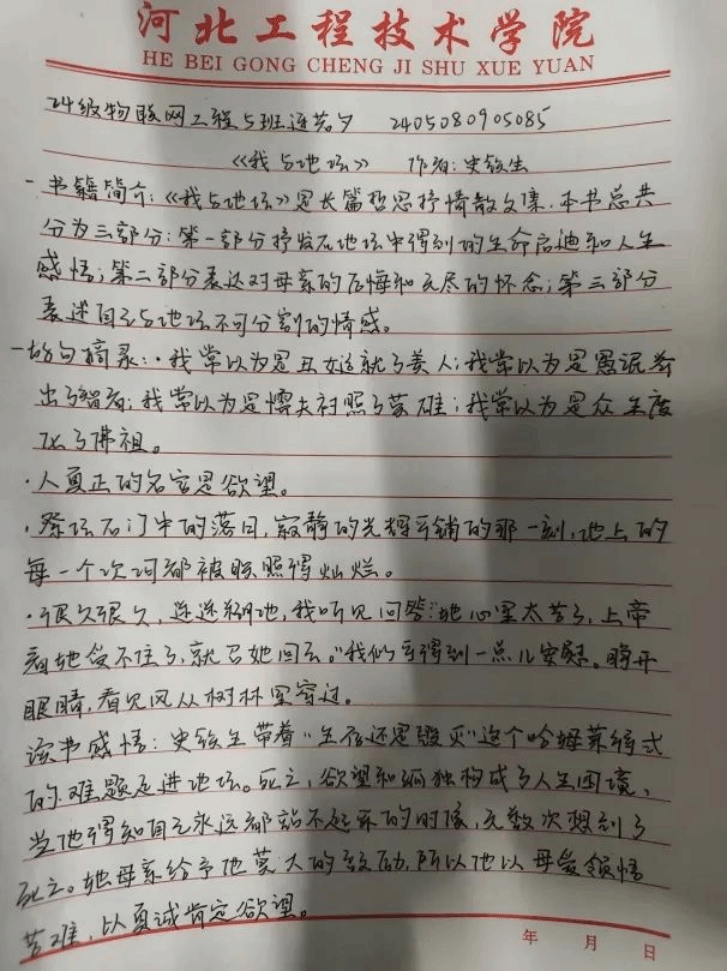 河北工程技术学院
HE BEI GONG CHENG JI SHU XUE YUAN
24级物联网工程5班连若夕 2405080905085
《我与地坛》 作者:史铁生
-书籍简介:《我与地坛》是长篇哲思抒情散文集.本书总共
分为三部分:第一部分抒发在地坛中得到的生命启迪和人生
感悟;第二部分表达对母亲的后悔和无尽的怀念;第三部分
表述自己与地坛不可分割的情感。
-好句摘录:·我常以为是丑女造就了美人;我常以为是愚氓举
出了智者;我常以为是懦夫衬照了英雄;我常以为是众生度
化了佛祖。
·人真正的名字是欲望。
·祭坛石门中的落日,寂静的光辉平铺的那一刻,地上的
每一个坎坷都被映照得灿烂。
·很久很久,迷迷糊地,我听见回答:"她心里太苦了,上帝
看她受不住了,就召她回去。"我似乎得到一点儿安慰。睁开
眼睛,看见风从树林里穿过。
读书感悟:史铁生带着"生存还是毁灭"这个哈姆莱特式
的难题走进地坛。死亡、欲望和孤独构成了人生困境,
当他得知自己永远都站不起来的时候,无数次想到了
死亡。她母亲给予他莫大的鼓励,所以他以母爱领悟
苦难,以真诚肯定欲望。
年 月 日